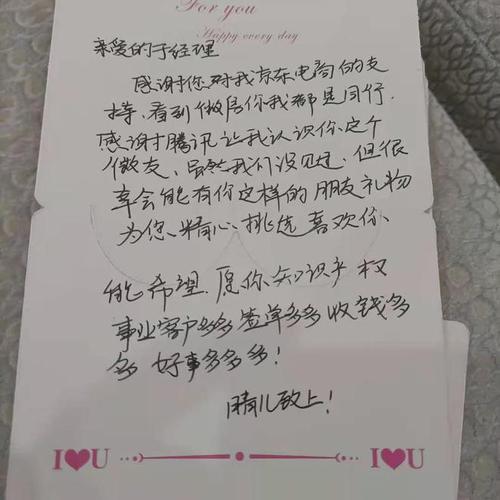 For you
Happy every day
亲爱的于经理
感谢您对我京东电商的支
持、看到微信你我都是同行.
感谢腾讯让我认识你这个
微友、虽然我们没见过、但很
幸会能有你这样的朋友礼物
为您、精心、挑选 喜欢你、
能希望、愿你、知识产权
事业客户多多签单多多收钱多
多 好事多多多!
晴儿敬上!
I❤U
I❤U